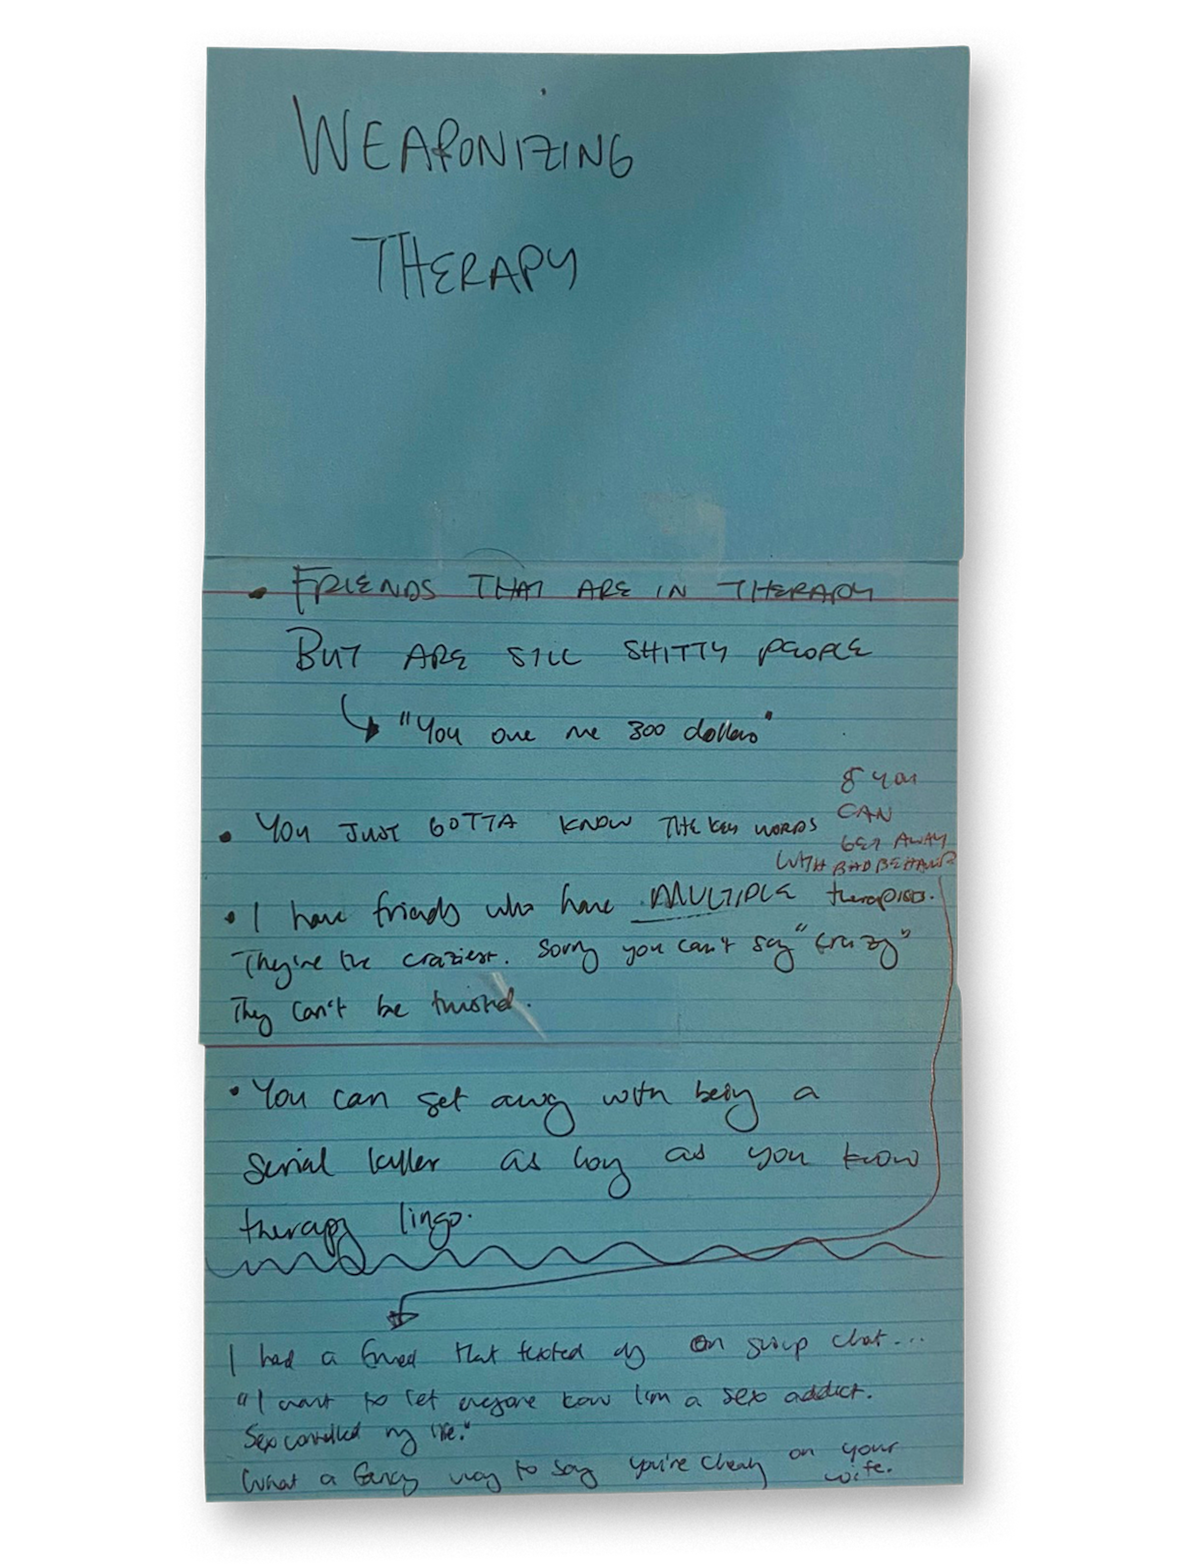 WEAPONIZING
THERAPY
• FRIENDS THAT ARE IN THERAPY
BUT ARE STILL SHITTY PEOPLE
"You owe me 300 dollars"
& YOU
CAN
GET AWAY
WITH BAD BEHAVIOR
• YOU JUST GOTTA KNOW THE KEY WORDS
• I have friends who have MULTIPLE therapists.
They're the craziest. Sorry you can't say "crazy"
They can't be trusted.
• You can get away with being a
serial killer as long as you know
therapy lingo.
I had a friend that texted on group chat...
"I want to let everyone know I'm a sex addict.
Sex controlled my life."
What a fancy way to say you're cheating on your
wife.